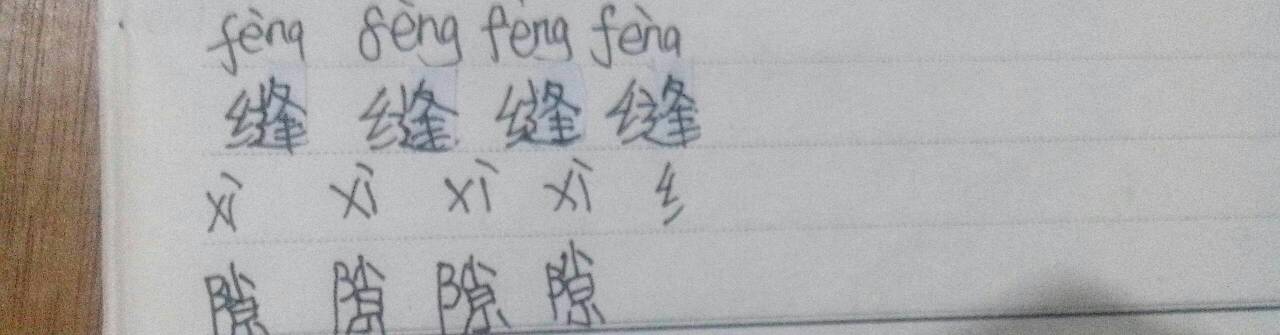 fèng fèng fèng fèng
缝 缝 缝 缝
xì xì xì xì 纟
隙 隙 隙 隙